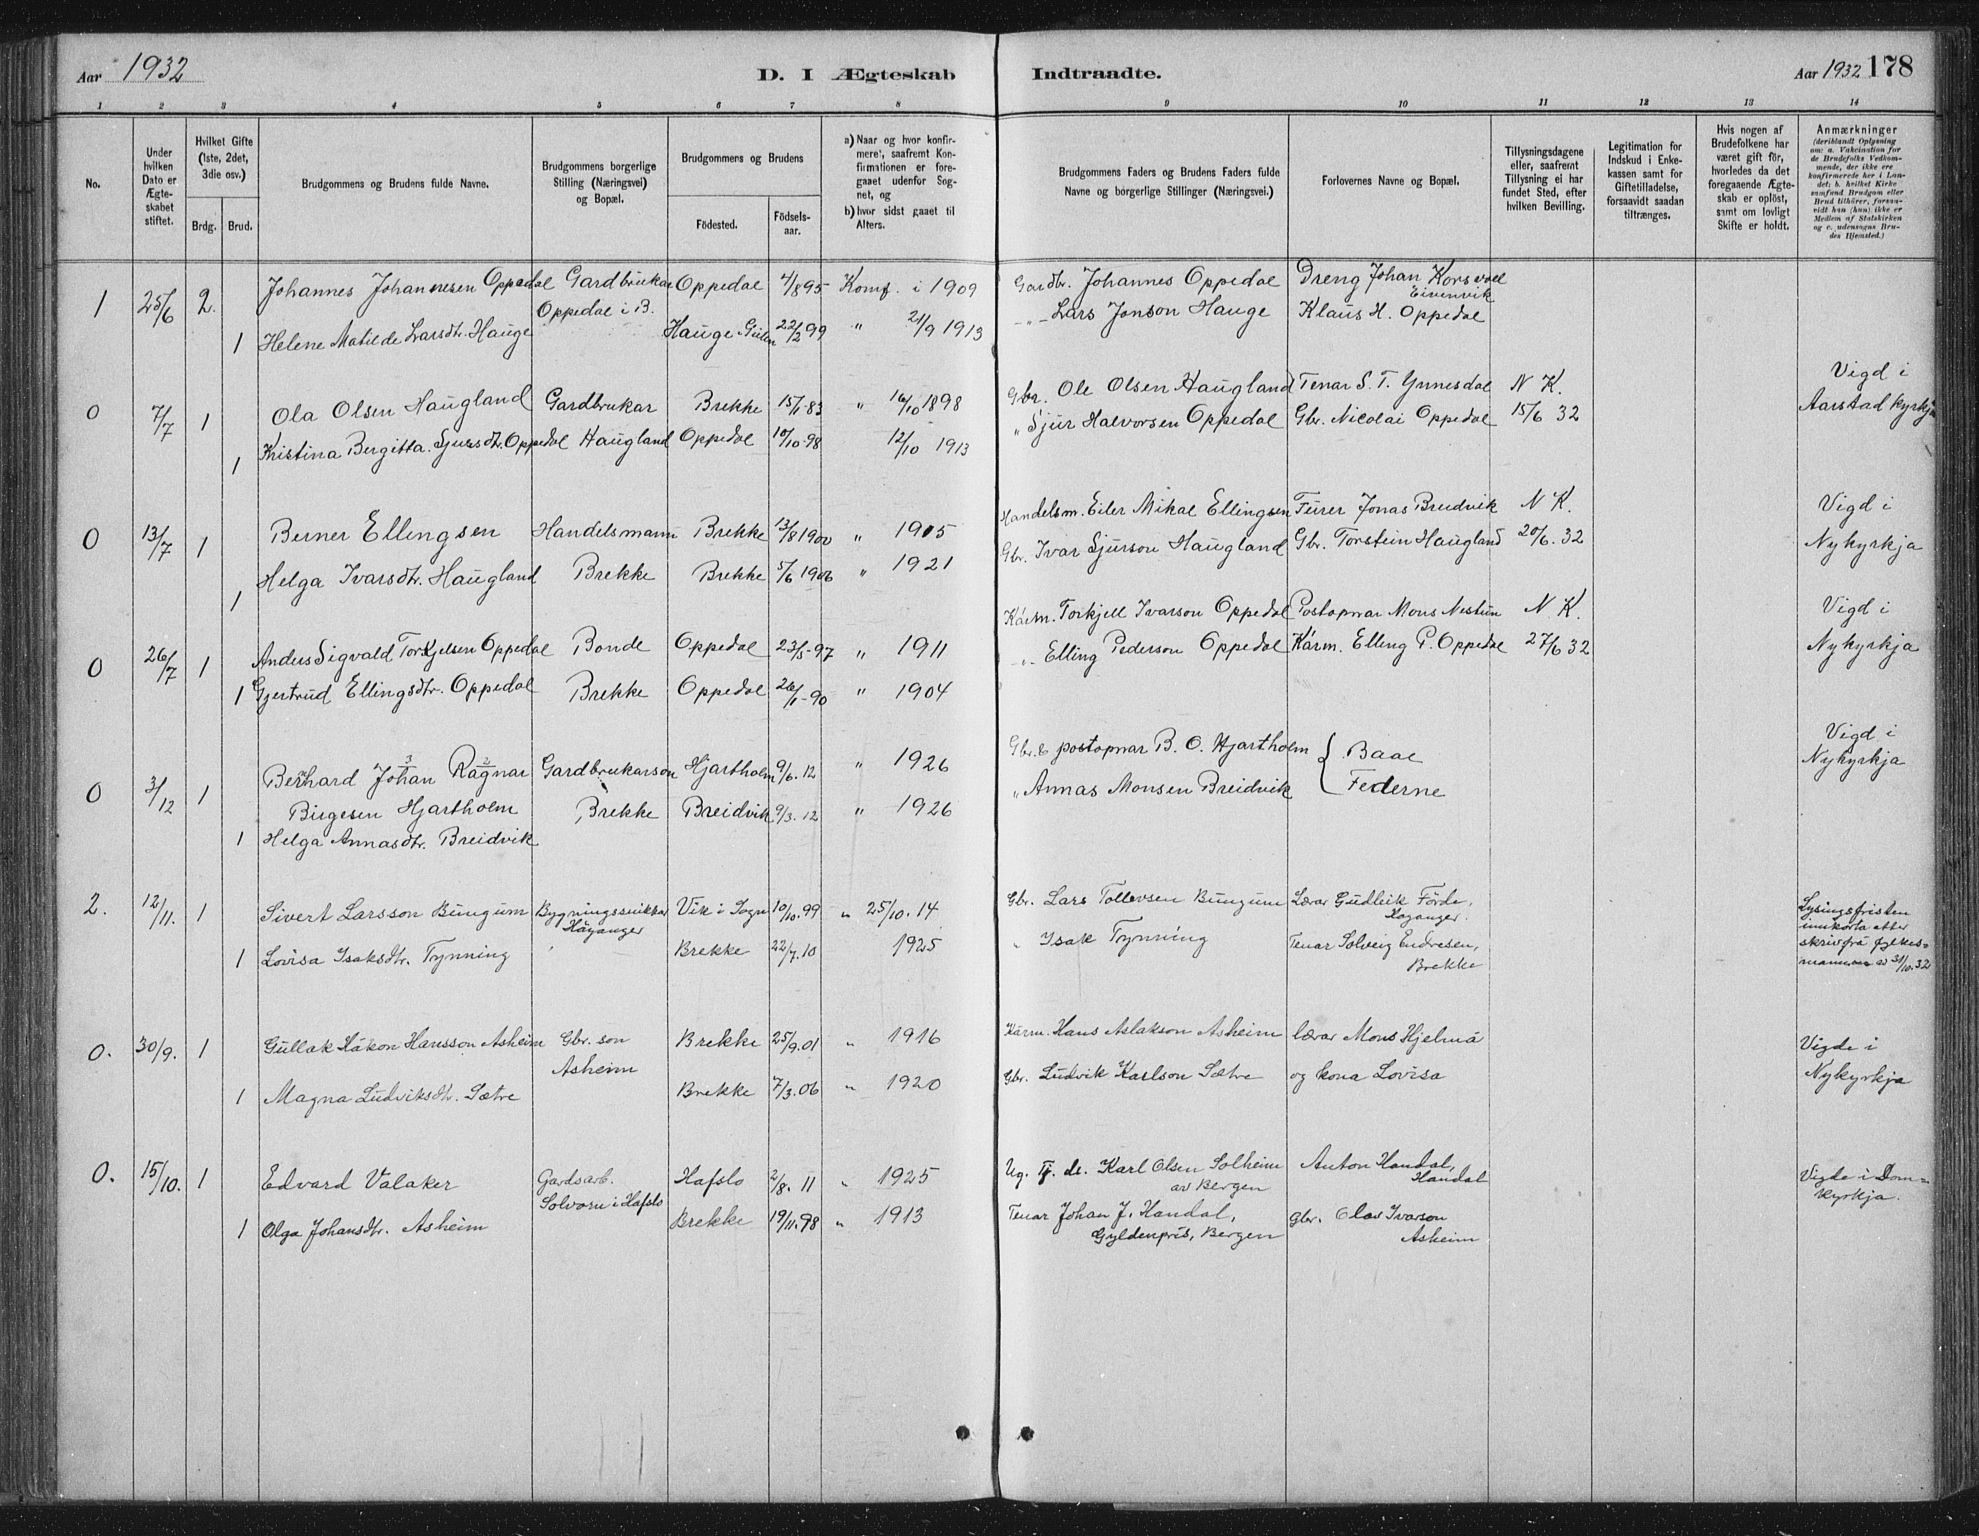 Aar 1932
D. I Ægteskab
Indtraadte.
Aar 1932 178
1 2 3 4 5 6 7 8 9 10 11 12 13 14
No.
Under hvilken Dato er Ægteskabet stiftet.
Hvilket Gifte (1ste, 2det, 3die osv.)
Brdg. Brud.
Brudgommens og Brudens fulde Navne.
Brudgommens borgerlige Stilling (Næringsvei) og Bopæl.
Brudgommens og Brudens
Födested.
Födselsaar.
a) Naar og hvor konfirmeret, saafremt Konfirmationen er foregaaet udenfor Sognet, og
b) hvor sidst gaaet til Alters.
Brudgommens Faders og Brudens Faders fulde Navne og borgerlige Stillinger (Næringsvei.)
Forlovernes Navne og Bopæl.
Tillysningsdagene eller, saafremt Tillysning ei har fundet Sted, efter hvilken Bevilling.
Legitimation for Indskud i Enkekassen samt for Giftetilladelse, forsaavidt saadan tiltrænges.
Hvis nogen af Brudefolkene har været gift för, hvorledes da det foregaaende Ægteskab er oplöst, samt om lovligt Skifte er holdt.
Anmærkninger (deriblandt Oplysning om: a. Vakcination for de Brudefolks Vedkommende, der ikke ere konfirmerede her i Landet; b. hvilket Kirkesamfund Brudgom eller Brud tilhörer, forsaavidt han (hun) ikke er Medlem af Statskirken og c. udensogns Brudes Hjemsted.)
1 25/6 2. Johannes Johannesen Oppedal Gardbrukar Oppedal 4/8 95 Konf. i 1909 Gardbr. Johannes Oppedal Dreng Johan Korsvoll
Oppedal i B. Eivenvik
1 Helene Matilde Larsdtr. Hauge Hauge Gulen 22/2 99 " 21/9 1913 -"- Lars Jonson Hauge Klaus H. Oppedal
0 7/7 1 Ola Olsen Haugland Gardbrukar Brekke 15/1-83 " 16/10 1898 Gbr. Ole Olsen Haugland Tenar S. T. Ynnesdal N K. Vigd i
1 Kristina Bergitta Sjursdtr. Oppedal Haugland Oppedal 10/10-98 12/10 1913 " Sjur Halvorsen Oppedal Gbr. Nicolai Oppedal 15/6 32 Aarstad kyrkja
0 13/7 1 Berner Ellingsen Handelsmann Brekke 13/8 1900 " 1905 Handelsm. Eiler Mikal Ellingsen Furer Jonas Breidvik N K. Vigd i
1 Helga Ivarsdtr. Haugland Brekke Brekke 5/6 1906 " 1921 Gbr. Ivar Sjurson Haugland Gbr. Torstein Haugland 20/6. 32 Nykyrkja
0 26/7 1 Anders Sigvald Torkjelsen Oppedal Bonde Oppedal 23/5-97 " 1911 Kårm. Torkjell Ivarson Oppedal Postopnar Mons Nestun N K. Vigd i
1 Gjertrud Ellingsdtr. Oppedal Brekke Oppedal 26/1-90 " 1904 -"- Elling Pederson Oppedal Kårm. Elling P. Oppedal 27/6 32 Nykyrkja
0 3/12 1 Bernhard Johan Ragnar Gardbrukarson Hjartholm 9/6. 12 " 1926 Gbr. & postopnar B. O. Hjartholm { Baae Vigd i
Birgesen Hjartholm Brekke Breidvik 9/3. 12 " 1926 " Annas Monsen Breidvik Federne Nykyrkja
1 Helga Annasdtr. Breidvik
2. 12/11. 1 Sivert Larsson Bungum Bygningssnikkar Vik i Sogn 10/10. 99 " 25/10. 14 Gbr. Lars Tollevsen Bungum Lærar Gudleik Förde, Lysingsfristen
Høyanger Høyanger. innkorta etter
1 Lovisa Isaksdtr. Tynning Brekke 22/7. 10 1925 " Isak Tynning Tenar Solveig Endresen, skriv frå fylkes-
Brekke mannen av 31/10. 32
0. 30/9. 1 Gullak Håkon Hansson Asheim Gbr. son Brekke 25/9. 01 " 1916 Kårm. Hans Aslakson Asheim lærar Mons Hjelmå Vigde i
Asheim
1 Magna Ludviksdtr. Sætre Brekke 7/3. 06 " 1920 Gbr. Ludvik Karlson Sætre og kona Lovisa Nykyrkja
0. 15/10. 1 Edvard Valaker Gardsarb. Hafslo 2/8. 11 " 1925 Ug. Tj. de. Karl Olsen Solheim Anton Handal, Vigde i Dom-
Solvorn i Hafslo av Bergen Handal kyrkja.
1 Olga Johansdtr. Asheim Brekke 19/11. 98 " 1913 Tenar Johan J. Handal, gbr. Olav Ivarson
Gyldenpris, Bergen Asheim